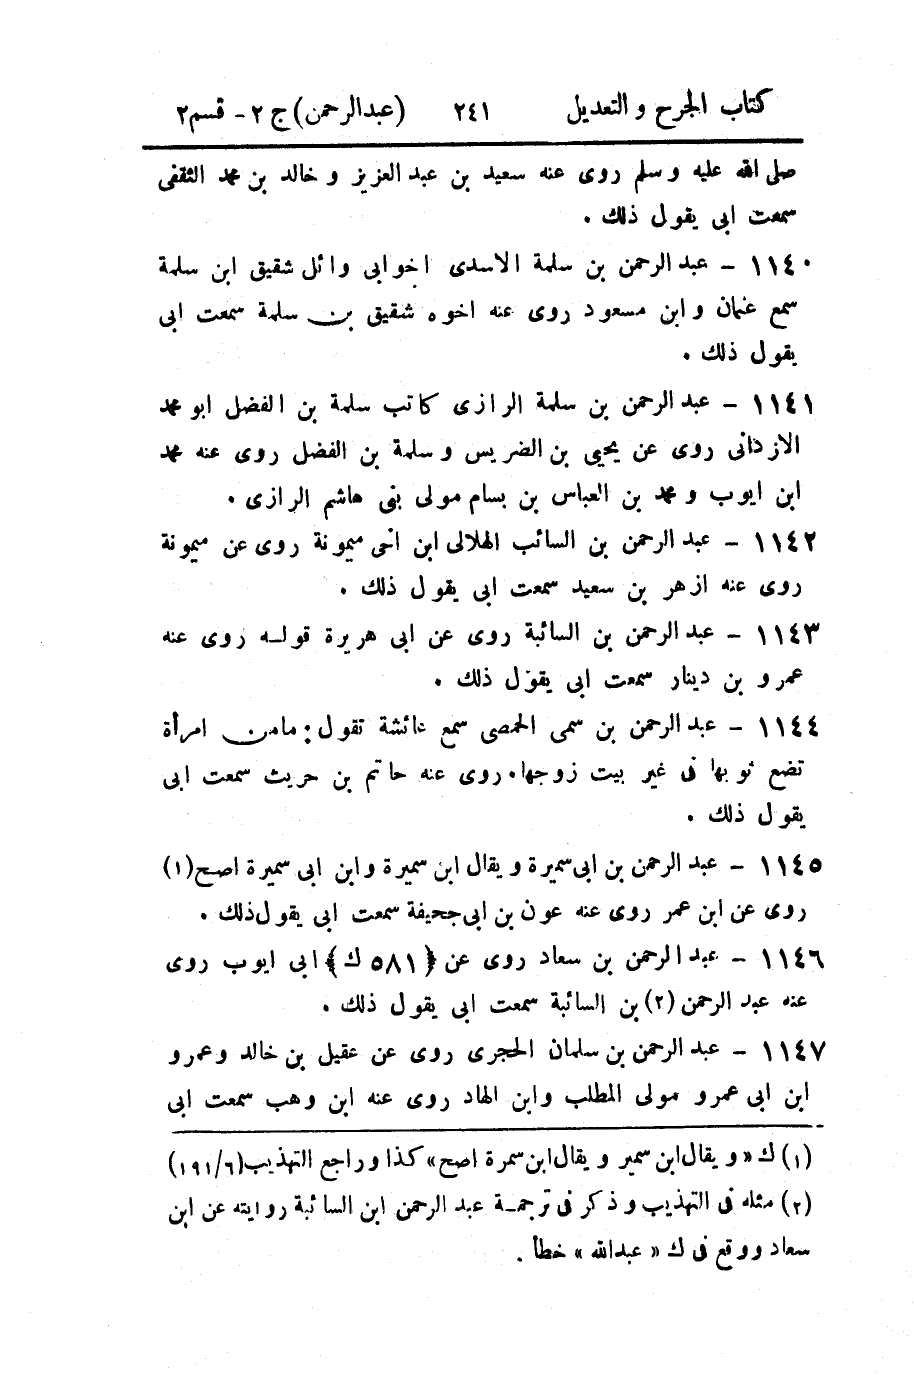 كتاب الجرح والتعديل ٢٤١ (عبد الرحمن) ج ٢ - قسم ٢
صلى الله عليه وسلم روى عنه سعيد بن عبد العزيز وخالد بن محمد الثقفى
سمعت ابى يقول ذلك .
١١٤٠ - عبد الرحمن بن سلمة الاسدى اخو ابى وائل شقيق ابن سلمة
سمع عثمان وابن مسعود روى عنه اخوه شقيق بن سلمة سمعت ابى
يقول ذلك .
١١٤١ - عبد الرحمن بن سلمة الرازى كاتب سلمة بن الفضل ابو محمد
الازدانى روى عن يحيى بن الضريس وسلمة بن الفضل روى عنه محمد
ابن ايوب ومحمد بن العباس بن بسام مولى بنى هاشم الرازى .
١١٤٢ - عبد الرحمن بن السائب الهلالى ابن اخى ميمونة روى عن ميمونة
روى عنه ازهر بن سعيد سمعت ابى يقول ذلك .
١١٤٣ - عبد الرحمن بن السائبة روى عن ابى هريرة قوله روى عنه
عمرو بن دينار سمعت ابى يقول ذلك .
١١٤٤ - عبد الرحمن بن سمى الحمصى سمع عائشة تقول : ما من امرأة
تضع ثوبها فى غير بيت زوجها . روى عنه حاتم بن حريث سمعت ابى
يقول ذلك .
١١٤٥ - عبد الرحمن بن ابى سميرة ويقال ابن سميرة وابن ابى سميرة اصح (١)
روى عن ابن عمر روى عنه عون بن ابى جحيفة سمعت ابى يقول ذلك .
١١٤٦ - عبد الرحمن بن سعاد روى عن ﴿٥٨١ ك﴾ ابى ايوب روى
عنه عبد الرحمن (٢) بن السائبة سمعت ابى يقول ذلك .
١١٤٧ - عبد الرحمن بن سلمان الحجرى روى عن عقيل بن خالد وعمرو
ابن ابى عمرو مولى المطلب وابن الهاد روى عنه ابن وهب سمعت ابى
(١) ك « ويقال ابن سمير ويقال ابن سمرة اصح » كذا وراجع التهذيب (٦/١٩١)
(٢) مثله فى التهذيب وذكر فى ترجمة عبد الرحمن ابن السائبة روايته عن ابن
سعاد ووقع فى ك « عبد الله » خطأ .